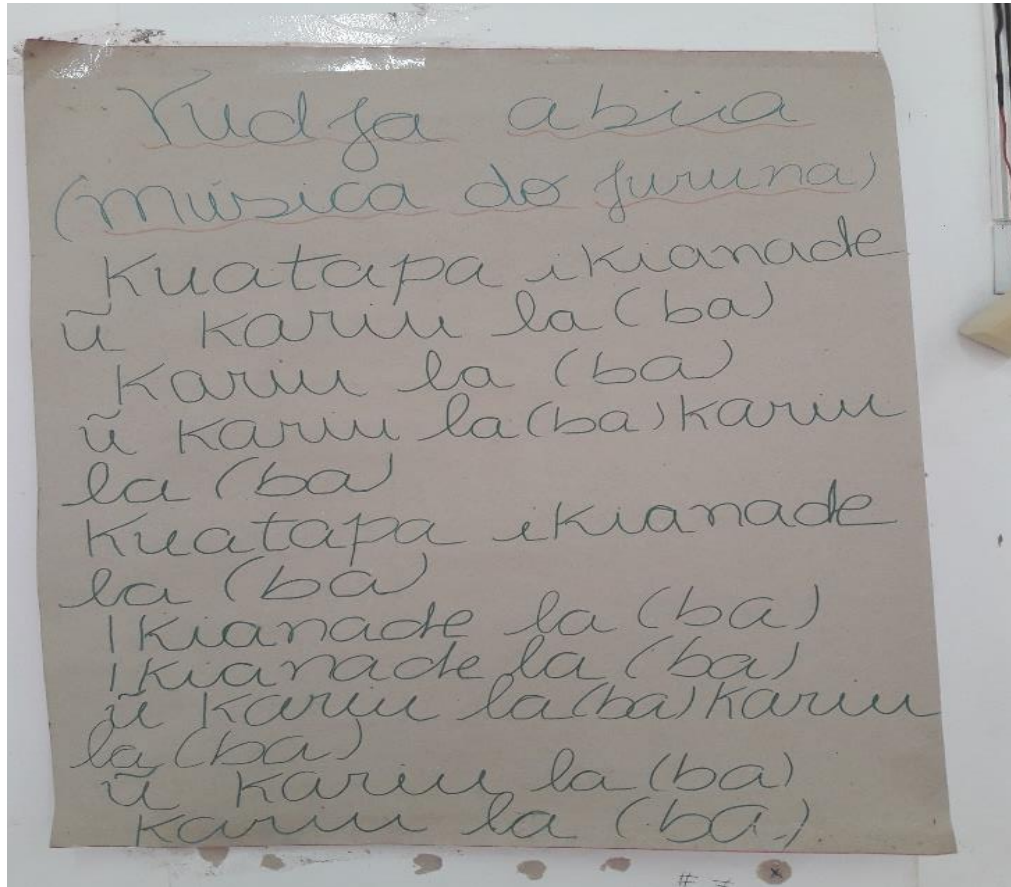 Yudja abïa
(música do juruna)
Kuatapa ikianade
ũ kariu la (ba)
Kariu la (ba)
ũ kariu la (ba) kariu
la (ba)
Kuatapa ikianade
la (ba)
Ikianade la (ba)
Ikianade la (ba)
ũ kariu la (ba) kariu
la (ba)
ũ kariu la (ba)
kariu la (ba)